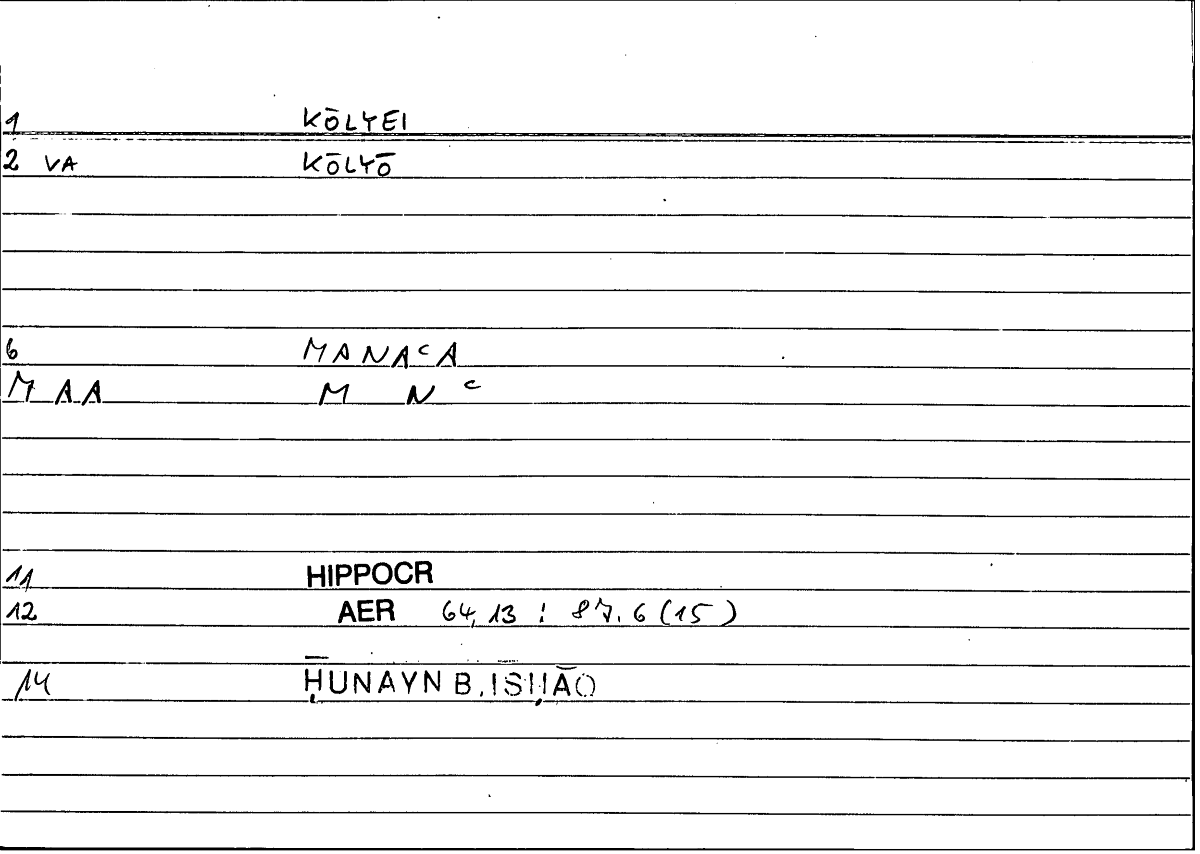 1 KŌLYEI
2 VA KŌLYŌ
6 MANAᶜA
M A A M N ᶜ
11 HIPPOCR
12 AER 64,13 : 87.6 (15)
14 ḤUNAYN B. ISḤĀQ